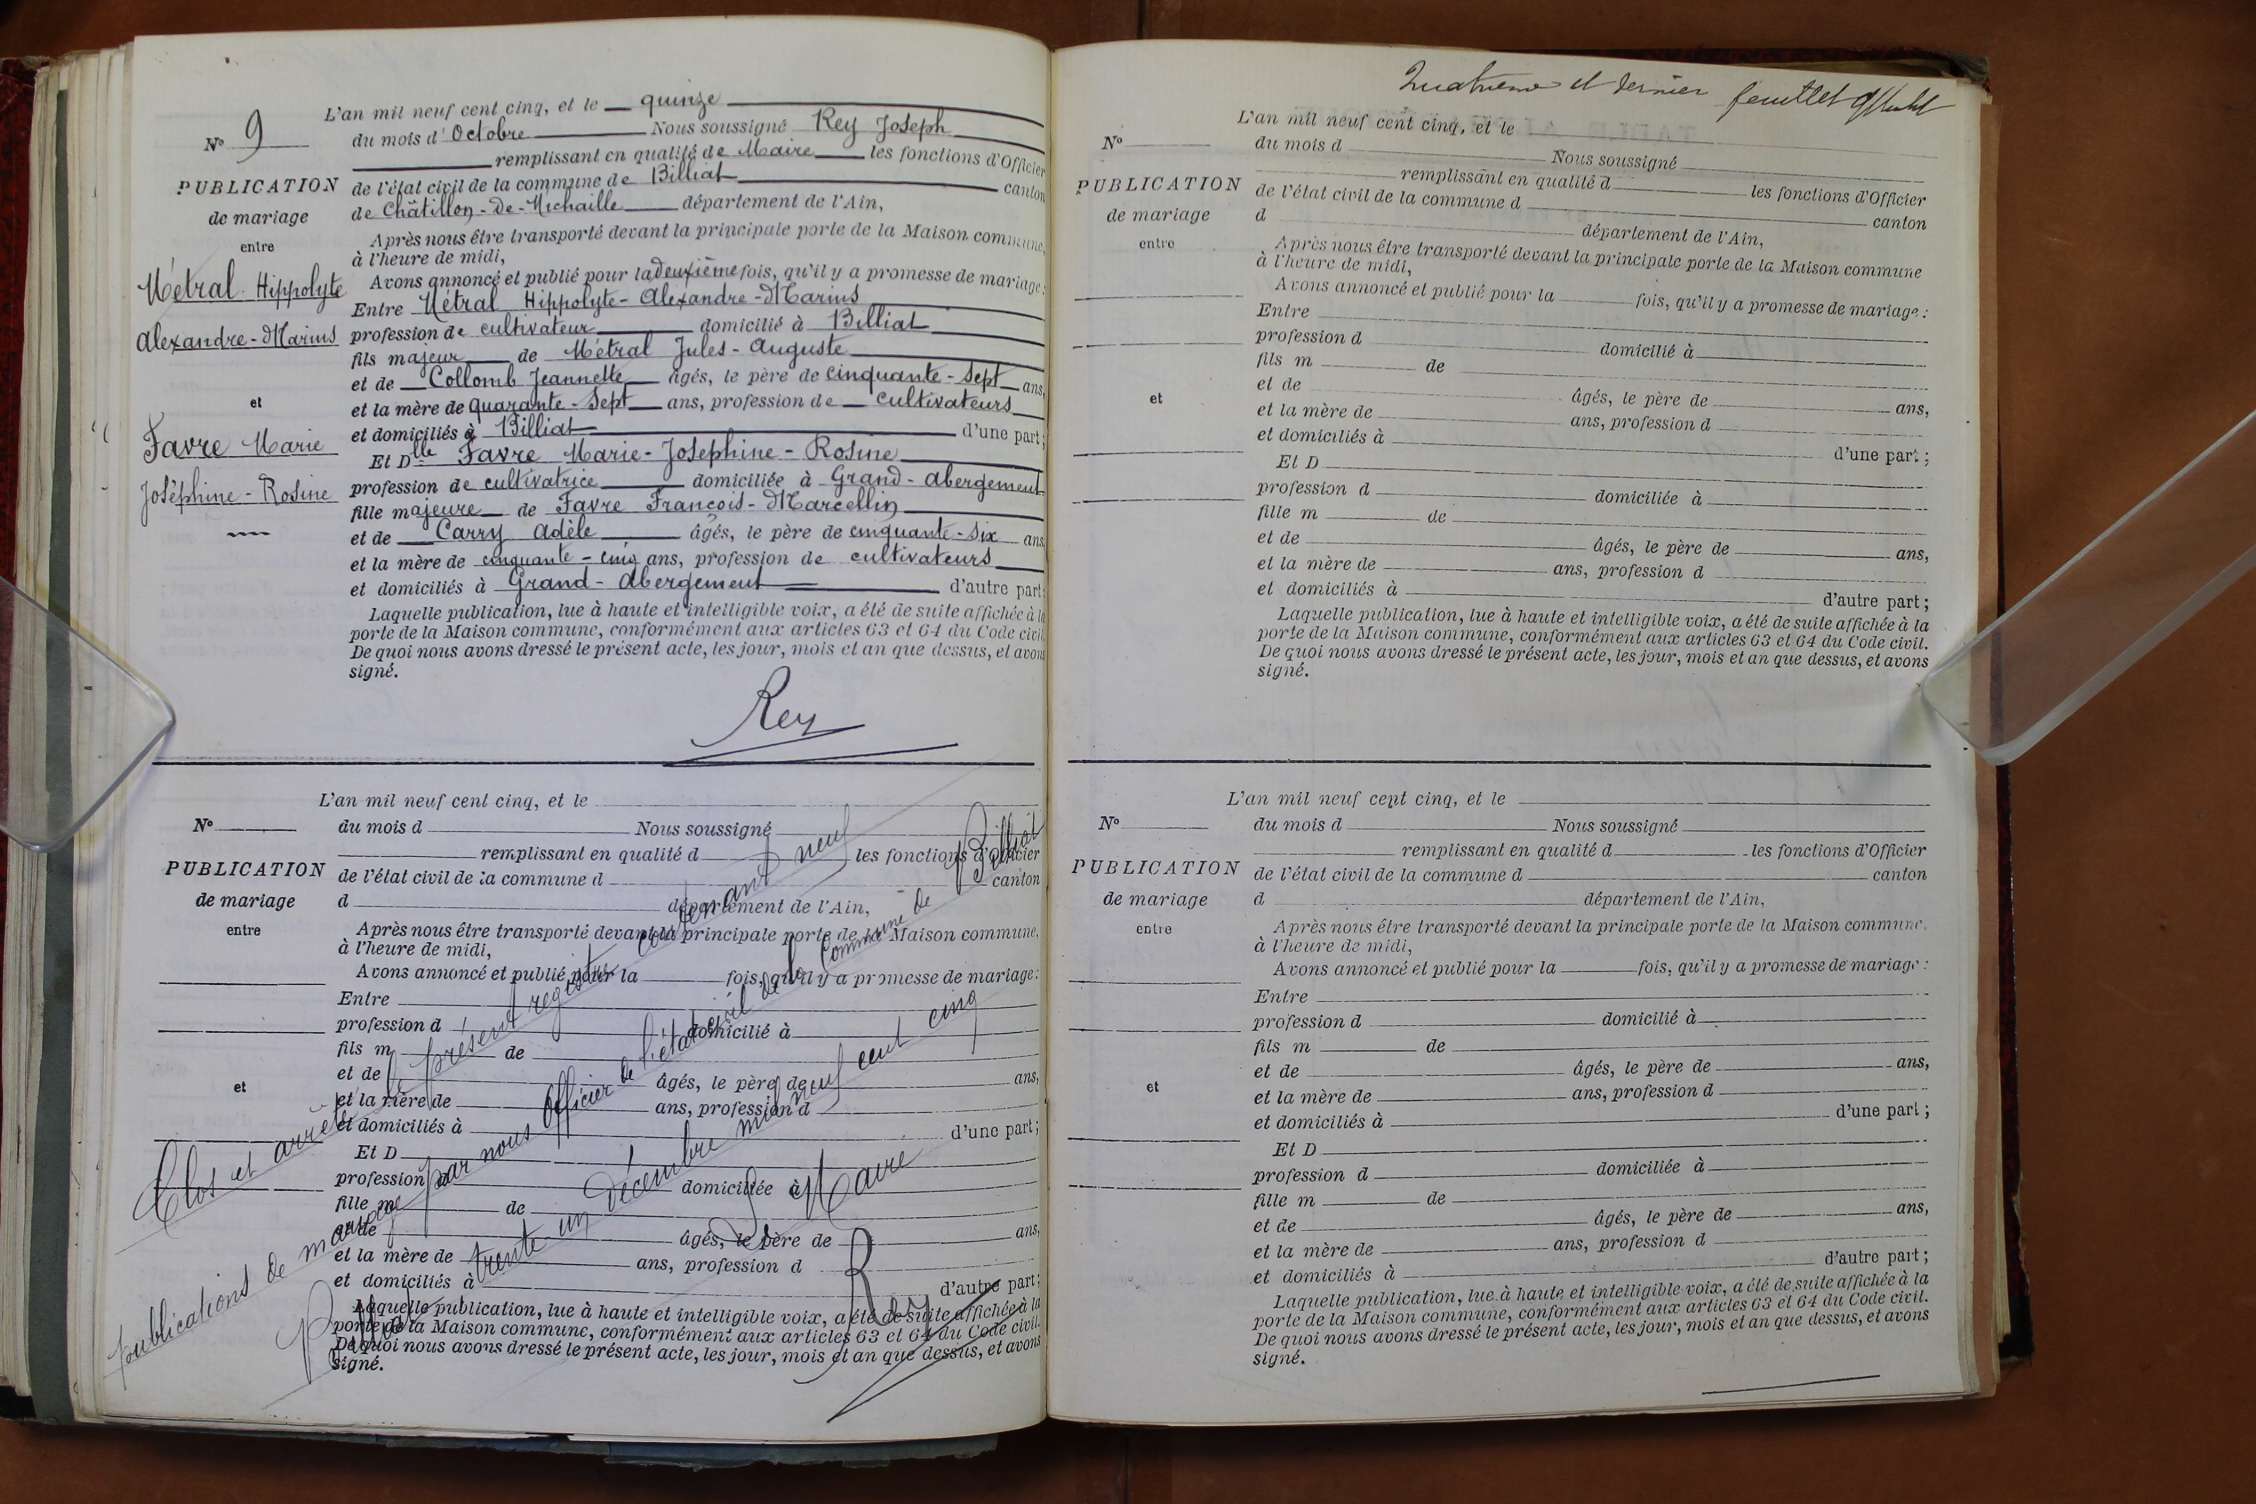 L'an mil neuf cent cinq, et le quinze
N° 9
du mois d'Octobre Nous soussigné Rey Joseph
remplissant en qualité de Maire les fonctions d'Officier
PUBLICATION
de mariage
entre
Métral Hippolyte
Alexandre-Marius
et
Favre Marie
Joséphine-Rosine
de l'état civil de la commune de Billiat canton
de Châtillon-de-Michaille département de l'Ain,
Après nous être transporté devant la principale porte de la Maison commune,
à l'heure de midi,
Avons annoncé et publié pour la deuxième fois, qu'il y a promesse de mariage:
Entre Métral Hippolyte-Alexandre-Marius
profession de cultivateur domicilié à Billiat
fils majeur de Métral Jules-Auguste
et de Collomb Jeannette âgés, le père de cinquante-sept ans,
et la mère de quarante-sept ans, profession de cultivateurs
et domiciliés à Billiat d'une part;
Et Dlle Favre Marie-Josephine-Rosine
profession de cultivatrice domiciliée à Grand-Abergement
fille majeure de Favre François-Marcellin
et de Carry Adèle âgés, le père de cinquante-six ans
et la mère de cinquante-cinq ans, profession de cultivateurs
et domiciliés à Grand-Abergement d'autre part;
Laquelle publication, lue à haute et intelligible voix, a été de suite affichée à la
porte de la Maison commune, conformément aux articles 63 et 64 du Code civil.
De quoi nous avons dressé le présent acte, les jour, mois et an que dessus, et avons
signé.
Rey
L'an mil neuf cent cinq, et le
N°
du mois d Nous soussigné
remplissant en qualité d les fonctions d'Officier
PUBLICATION
de mariage
entre
et
de l'état civil de la commune d canton
d département de l'Ain,
Après nous être transporté devant la principale porte de la Maison commune,
à l'heure de midi,
Avons annoncé et publié pour la fois, qu'il y a promesse de mariage:
Entre
profession d domicilié à
fils m de
et de âgés, le père de ans,
et la mère de ans, profession d
et domiciliés à d'une part;
Et D
profession d domiciliée à
fille m de
et de âgés, le père de ans,
et la mère de ans, profession d
et domiciliés à d'autre part;
Laquelle publication, lue à haute et intelligible voix, a été de suite affichée à la
porte de la Maison commune, conformément aux articles 63 et 64 du Code civil.
De quoi nous avons dressé le présent acte, les jour, mois et an que dessus, et avons
signé.
Clos et arrêté le présent registre contenant neuf
publications de mariage par nous Officier de l'état civil de la commune de Billiat
Billiat trente un décembre mil neuf cent cinq
Le Maire
Rey
Quatrième et dernier feuillet
L'an mil neuf cent cinq, et le
N°
du mois d Nous soussigné
remplissant en qualité d les fonctions d'Officier
PUBLICATION
de mariage
entre
et
de l'état civil de la commune d canton
d département de l'Ain,
Après nous être transporté devant la principale porte de la Maison commune
à l'heure de midi,
Avons annoncé et publié pour la fois, qu'il y a promesse de mariage:
Entre
profession d domicilié à
fils m de
et de âgés, le père de ans,
et la mère de ans, profession d
et domiciliés à d'une part;
Et D
profession d domiciliée à
fille m de
et de âgés, le père de ans,
et la mère de ans, profession d
et domiciliés à d'autre part;
Laquelle publication, lue à haute et intelligible voix, a été de suite affichée à la
porte de la Maison commune, conformément aux articles 63 et 64 du Code civil.
De quoi nous avons dressé le présent acte, les jour, mois et an que dessus, et avons
signé.
L'an mil neuf cent cinq, et le
N°
du mois d Nous soussigné
remplissant en qualité d les fonctions d'Officier
PUBLICATION
de mariage
entre
et
de l'état civil de la commune d canton
d département de l'Ain,
Après nous être transporté devant la principale porte de la Maison commune,
à l'heure de midi,
Avons annoncé et publié pour la fois, qu'il y a promesse de mariage:
Entre
profession d domicilié à
fils m de
et de âgés, le père de ans,
et la mère de ans, profession d
et domiciliés à d'une part;
Et D
profession d domiciliée à
fille m de
et de âgés, le père de ans,
et la mère de ans, profession d
et domiciliés à d'autre part;
Laquelle publication, lue à haute et intelligible voix, a été de suite affichée à la
porte de la Maison commune, conformément aux articles 63 et 64 du Code civil.
De quoi nous avons dressé le présent acte, les jour, mois et an que dessus, et avons
signé.